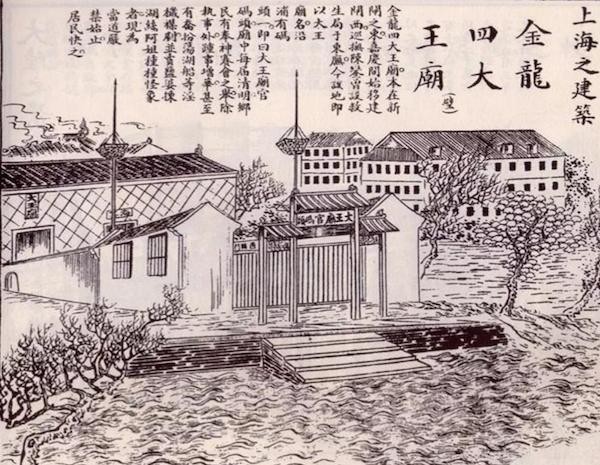 上海之建築
金龍
四大
王廟
金龍四大王廟本在新
閘之東嘉慶間始移建
閘西巡撫陳設救
生局于東廡今該地即
以大王
廟名沿
浦有碼
頭一即曰大王廟官
碼頭廟中每屆清明鄉
民有奉神賽會之舉除
執事外踵事增華甚至
有喬扮蕩湖船等淫
穢並賣鹽婆採
湖絲阿姐種種怪象
者現為
當道嚴
禁始止
居民快之
大王廟官碼頭